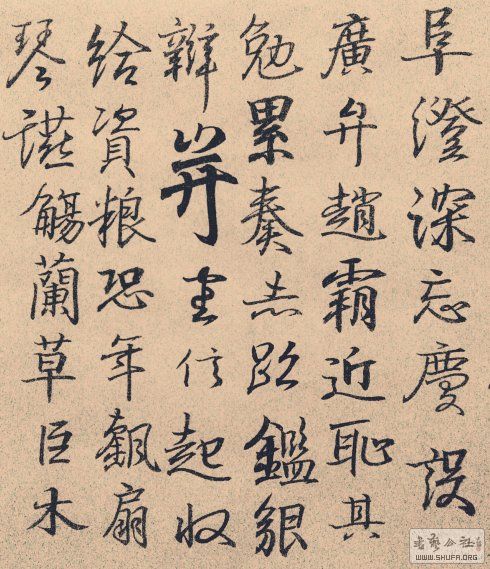 阜澄深忘慶設
廣弁趙霸近恥其
勉累奏志鑑貌
辨信起收
給資粮恐年飄扇
琴讌觴蘭草臣木
書藝公社
WWW.SHUFA.ORG